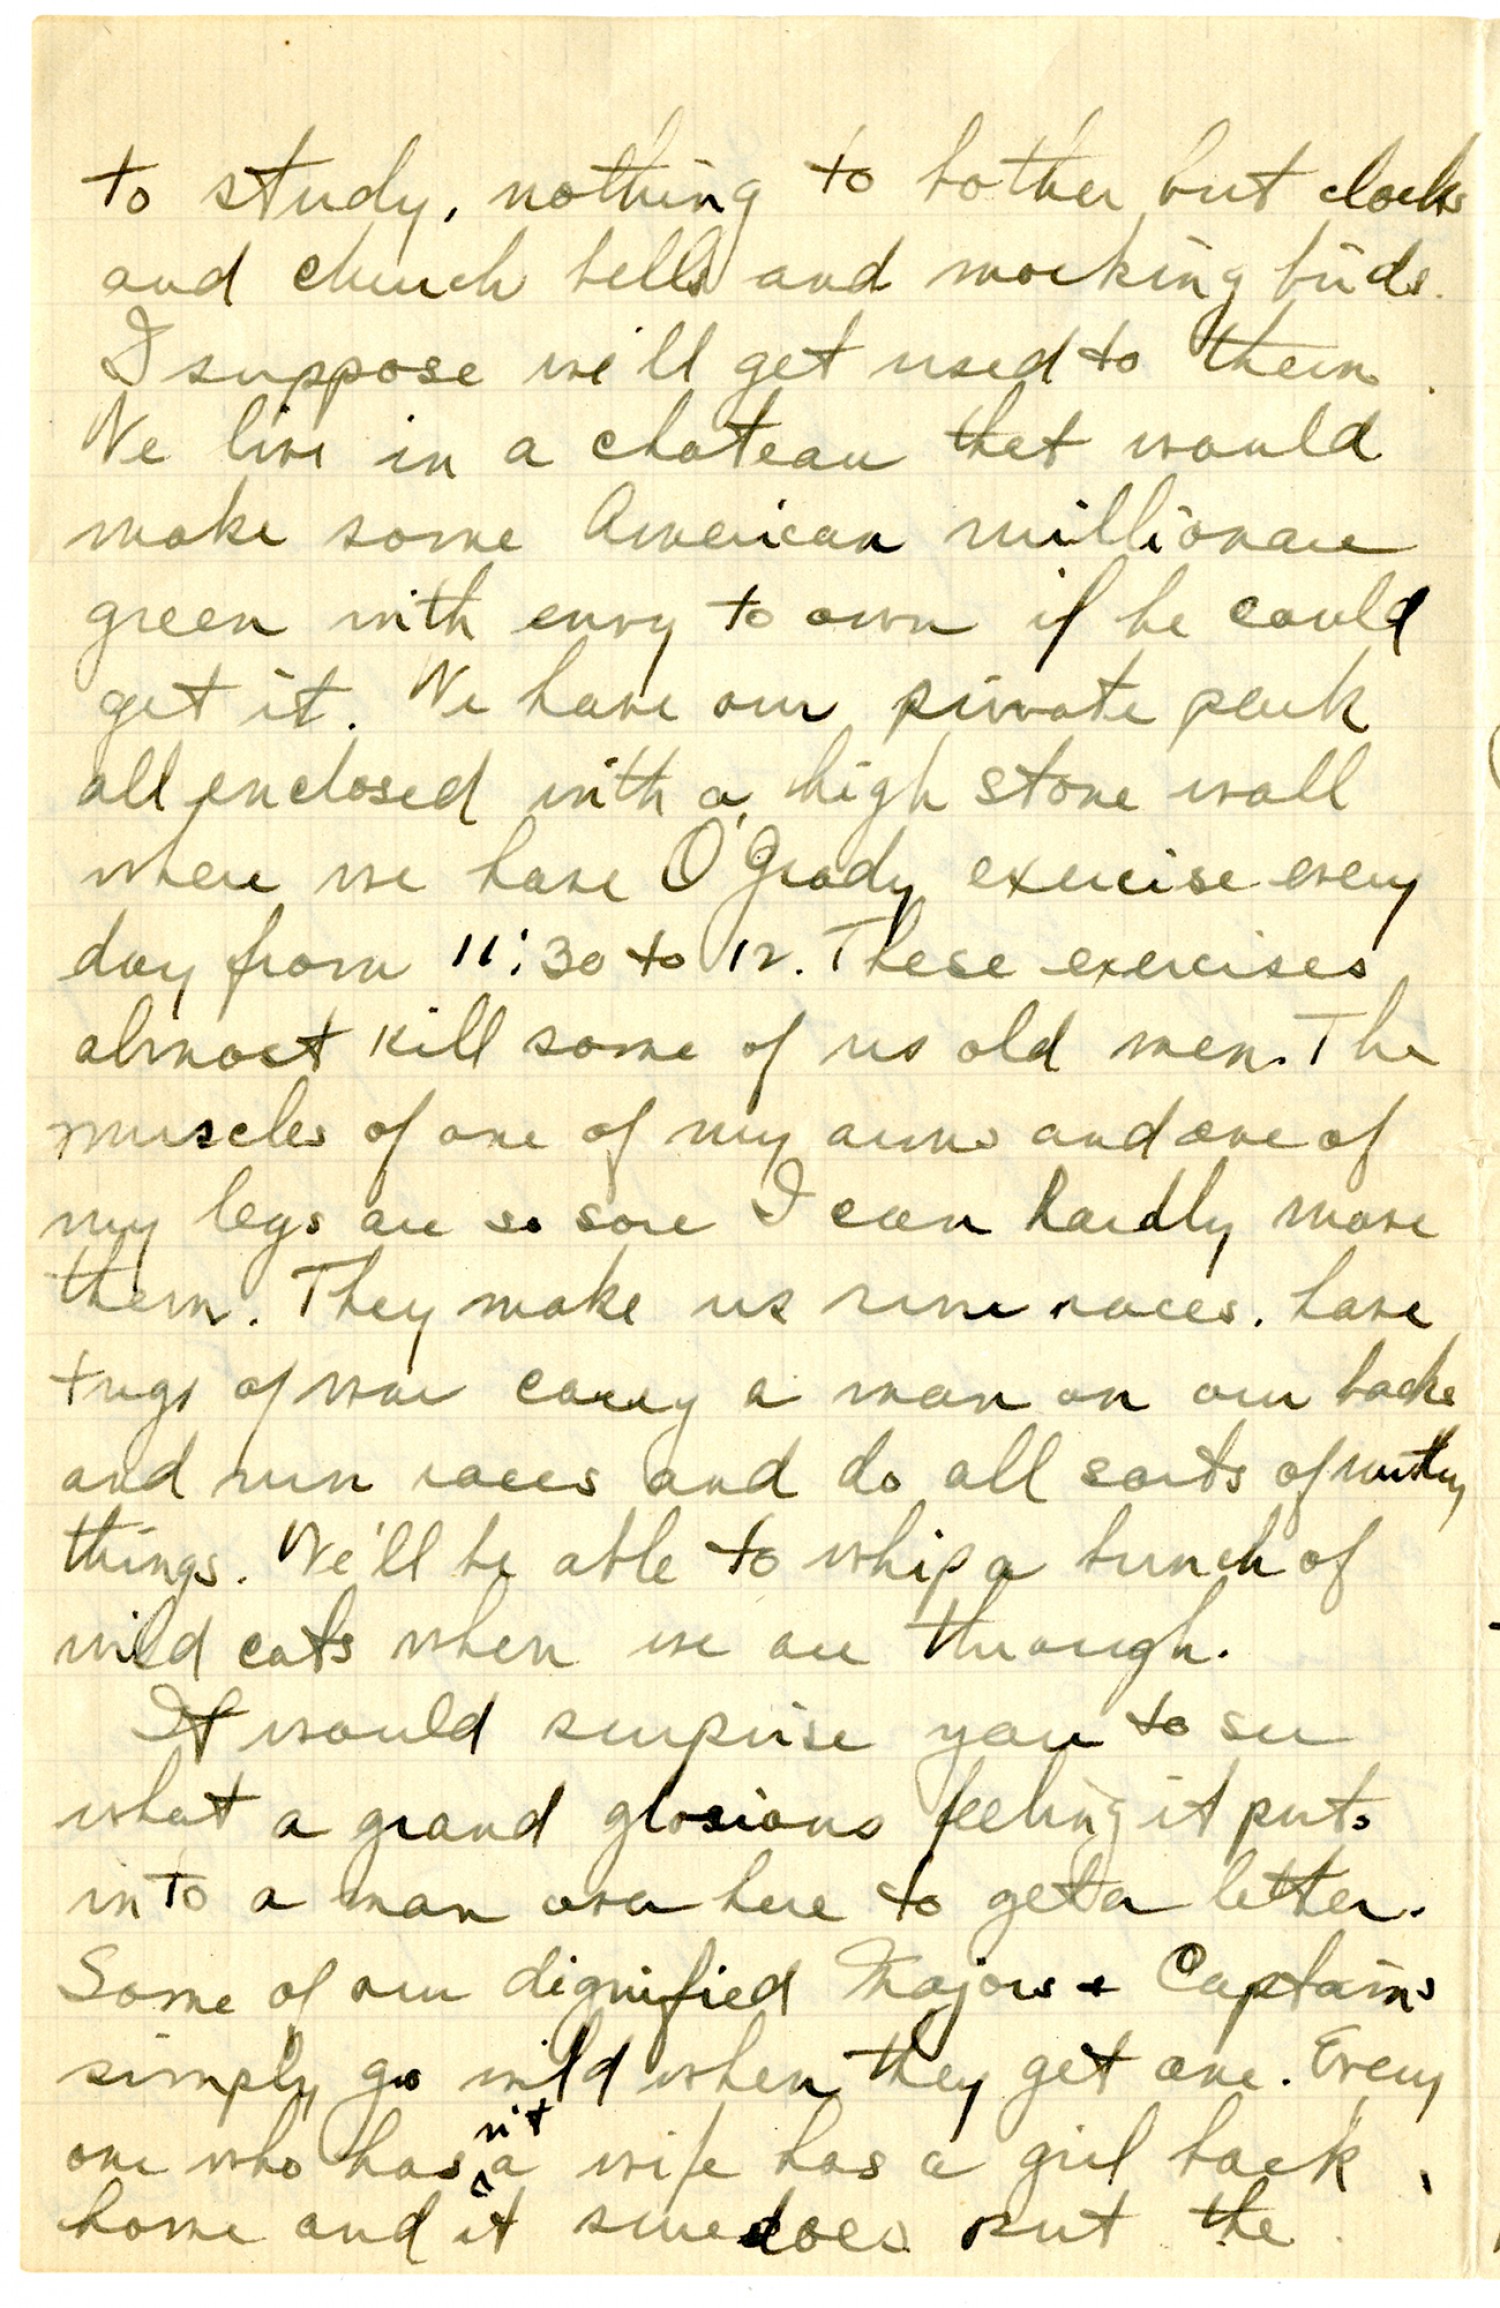 to study, nothing to bother but clocks
and church bells and mocking birds.
I suppose we'll get used to them.
We live in a chateau that would
make some American millionare
green with envy to own if he could
get it. We have our private park
all enclosed with a high stone wall
where we have O'Grady exercise every
day from 11:30 to 12. These exercises
almost kill some of us old men. The
muscles of one of my arms and one of
my legs are so sore I can hardly move
them. They make us run races, have
tugs of war carry a man on our backs
and run races and do all sorts of
things. We'll be able to whip a bunch of
wild cats when we are through.
It would surprise you to see
what a grand glorious feeling it puts
into a man over here to get a letter.
Some of our dignified Majors & Captains
simply go wild when they get one. Every
one who has n't a wife has a girl back
home and it sure does put the